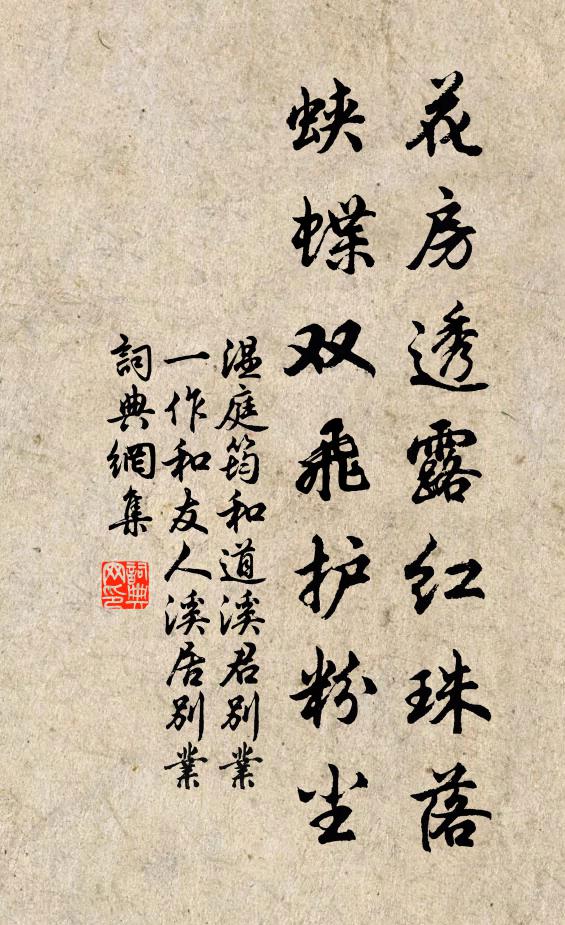 花房透露红珠落
蛱蝶双飞护粉尘
温庭筠和道溪君别業
一作和友人溪居别業
詞典網集
詞典
网印